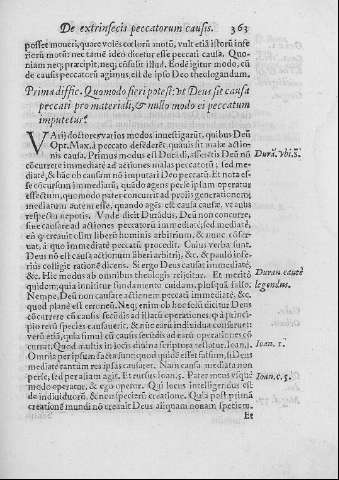 De extrinsecis peccatorum causis. 363
posset moueri, quare volés cœlorũ motũ, vult etiã istorũ infe
riorũ motũ: nec tamẽ ideo dicetur esse peccati causa. Quo-
niam neq; præcipit, neq; consulit illud. Eodẽ igitur modo, cũ
de causis peccatorũ agimus, est de ipso Deo theologandum.
Prima diffic. Quomodo fieri potest: vt Deus sit causa
peccati pro materiali, & nullo modo ei peccatum
imputetur?
VArij doctores varios modos inuestigarũt, quibus Deũ
Opt. Max. à peccato defẽderẽt quauis sit malæ actio-
nis causa. Primus modus est Durãdi, asserẽtis Deũ nõ
Durã. Vbi.S.
cõcurrere immediatè ad actiones malas peccatorũ; sed me-
diatè, & hãc ob causam nõ imputari Deo peccatũ. Et nota es-
se cõcursum immediatũ, quãdo agens perse ipsam operatur
effectum, quo modo pater concurrit ad prolis generationem;
mediatum autem esse, quando agẽs est causa causæ, ve auus
respectu nepotis. Vnde dicit Durãdus, Deũ non concurre,
siue causare ad actiones peccatorũ immediatè, sed mediatè,
eò q̃ creauit cõm liberũ hominis arbitrium, & aunc cõser-
uat, à quo immediatè peccatũ procedit. Cuius verba sunt.
Deus nõ est causa actionum liberi arbitrij, &c. & paulò infe-
riùs colligit rationẽ dicens. Si ergo Deus causat immediatè,
&c. Hic modus ab omnibus theologis reijcitur. Et meritò
Duran. cautè
legendus.
quidem; quia innititur fundamento cuidam, plusquã falso.
Nempe, Deũ non causare actionem peccati immediatè, &c.
quod planè est erroneũ. Neq; enim ob hoc solũ dicitur Deus
cõcurrere cũ causis secũdis ad illarũ operationes, q̃ à princi-
pio rerũ species causauerit, & nũc earũ indiuidua conseruet:
verũ etiã, quia simul cũ causis secũdis ad earũ operationes cõ
currat. Quod ex multis in locis diuina scriptura testatur. Ioan. 1.
Ioan. 1.
Omnia per ipsum facta sunt; quod quidẽ esset falsum, si Deus
mediatè tantum res ipsas causaret. Nam causa mediata non
per se, sed per aliam agit. Et rursus Ioan. 5. Pater meus vsque
Ioan. c. 5.
modo operatur, & ego operor. Qui locus intelligendus est
de indiuiduorũ, & non specierũ creatione. Quia post primã
creationẽ mundi nõ creauit Deus aliquam nouam speciem.
Et